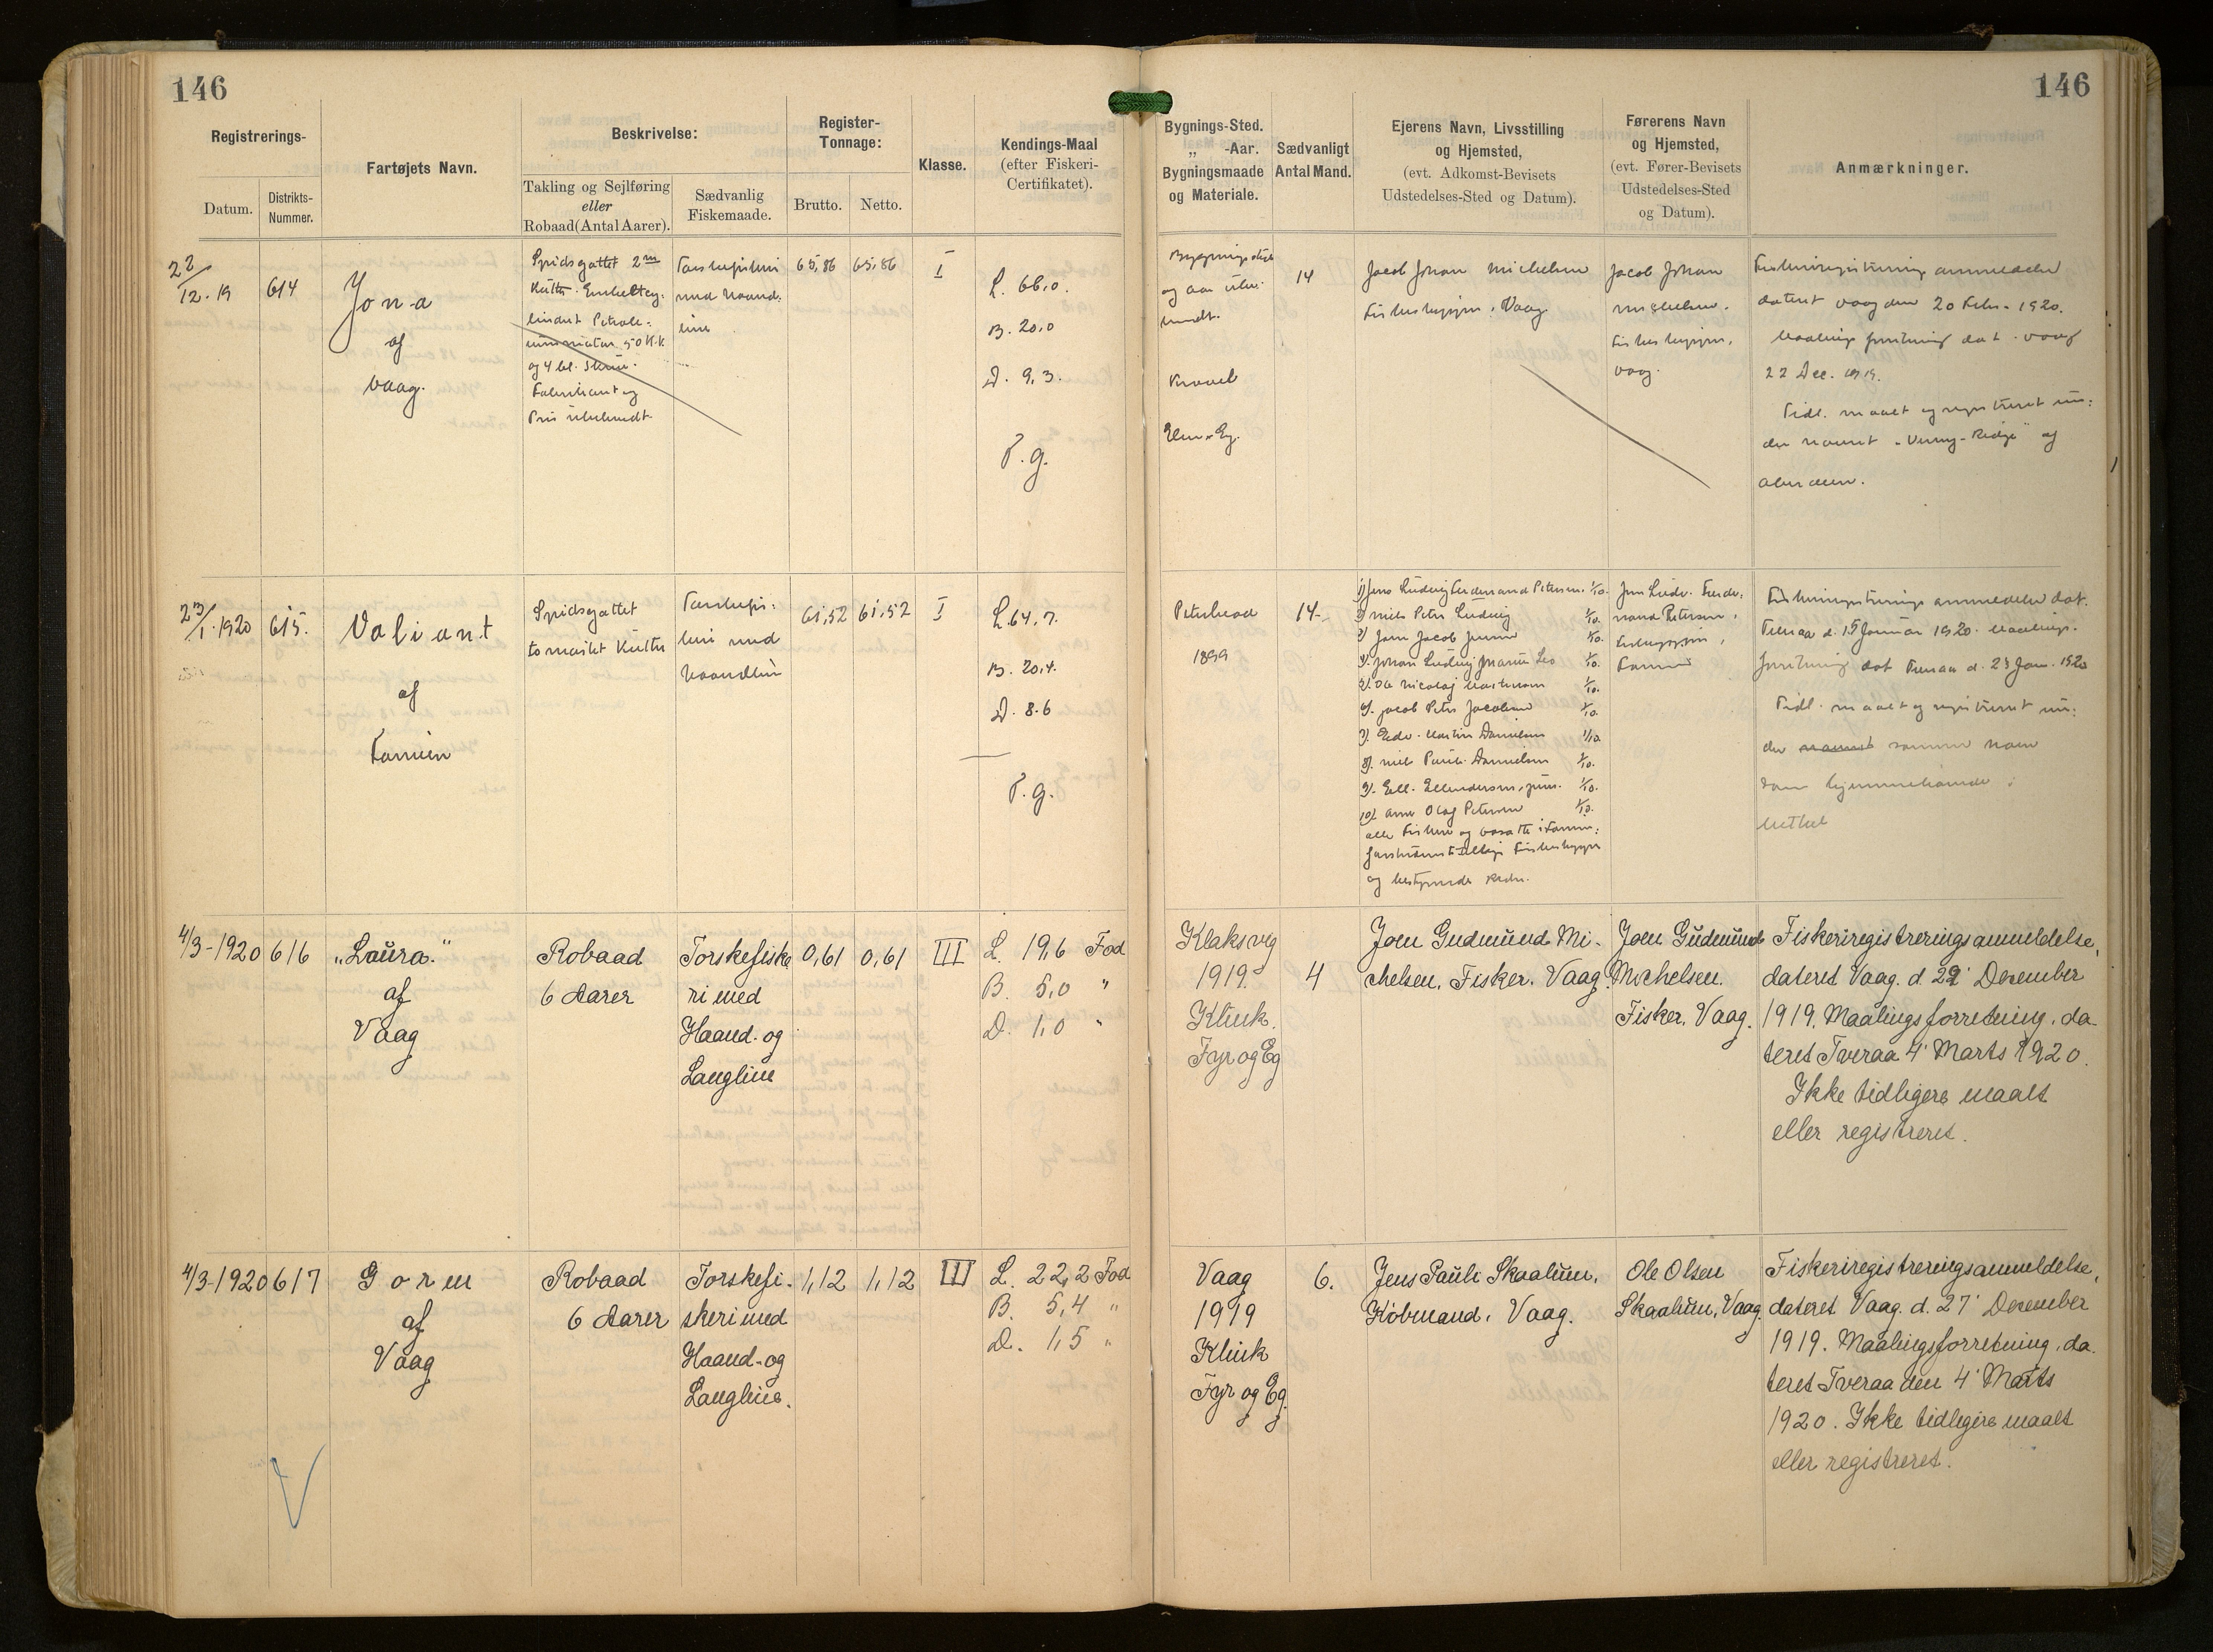 146
146
Registrerings-
Datum.
Distrikts-
Nummer.
Fartøjets Navn.
Beskrivelse:
Takling og Sejlføring
eller
Robaad (Antal Aarer).
Sædvanlig
Fiskemaade.
Register-
Tonnage:
Brutto.
Netto.
Klasse.
Kendings-Maal
(efter Fiskeri-
Certifikatet).
Bygnings-Sted.
„ -Aar.
Bygningsmaade
og Materiale.
Sædvanligt
Antal Mand.
Ejerens Navn, Livsstilling
og Hjemsted,
(evt. Adkomst-Bevisets
Udstedelses-Sted og Datum).
Førerens Navn
og Hjemsted,
(evt. Fører-Bevisets
Udstedelses-Sted
og Datum).
Anmærkninger.
22/12.19
614
Jona
af
Vaag.
Spidsgattet 2m
Kutter. Enkeltcy-
lindret Petrole-
ummotor 50 H.K
og 4 bl. Skrue.
Fabrikant og
Pris ubekendt.
Torskefiskeri
med Haand-
line
65,86
65,86
I
L. 66,0.
B. 20,0
D. 9,3.
P. g.
Bygningssted
og Aar ube-
kendt.
Kravel
Elm & Eg.
14
Jacob Johan Michelsen
Fiskeskipper, Vaag.
Jacob Johan
Michelsen.
Fiskeskipper,
Vaag.
Fiskeriregistrering anmeldelse
dateret Vaag den 20 Febr. 1920.
Maalings forretning dat. Vaag
22 Dec. 1919.
Tidl. maalt og registreret un-
der Navnet "Vimy-Ridge" af
Aberdeen.
23/1.1920
615.
Valiant
af
Famien
Spidsgattet
tomastet Kutter
Torskefis-
keri med
Haandline
61,52
61,52
I
L. 64,7.
B. 20,4.
D. 8.6
P. g.
Peterhead
1899
14.
1) Jens Ludvig Ferdinand Petersen 1/10.
2) Niels Peter Ludvig 1/10.
3) Joen Jacob 1/10.
4) Johan Ludvig 1/10.
5) Ole Nicolaj Mortensen 1/10.
6) Jacob Peter Jacobsen 1/10.
7) Edv. Martin Danielsen 1/10.
8) Niels Pauli Danielsen 1/10.
9) Ell. Ellendersen, jun. 1/10.
10) Arne Olaf Petersen 1/10.
alle Fiskere og bosatte i Famien:
førstnævnte tillige Fiskeskipper
og bestyrende Reder.
Jens Ludv. Ferdi-
nand Petersen,
Fiskeskipper,
Famien
Fiskeriregistrerings anmeldelse dat.
Tveraa d. 15 Januar 1920. Maalings-
forretning dat Tveraa d. 23 Jan. 1920
Tidl. maalt og registreret un-
der samme Navn
som hjemmehørende i
Methel
4/3-1920
616
„Laura."
af
Vaag
Robaad
6 Aarer
Torskefiske
ri med
Haand- og
Langline
0,61
0,61
III
L. 19,6 Fod
B. 5,0 "
D. 1,0 "
Klaksvig
1919.
Klink.
Fyr og Eg
4
Joen Gudmund Mi-
chelsen, Fisker. Vaag.
Joen Gudmund
Michelsen.
Fisker, Vaag.
Fiskeriregistreringsanmeldelse,
dateret Vaag. d. 22' December
1919. Maalingsforretning, da-
teret Tveraa 4' Marts 1920.
Ikke tidligere maalt
eller registreret.
4/3-1920
617
Gorm
af
Vaag
Robaad
6 Aarer
Torskefi-
skeri med
Haand- og
Langline.
1,12
1,12
III
L. 22,2 Fod
B. 5,4 "
D. 1,5 "
Vaag
1919
Klink
Fyr og Eg.
6.
Jens Pauli Skaalum,
Købmand, Vaag.
Ole Olsen
Skaalum, Vaag.
Fiskeriregistreringsanmeldelse,
dateret Vaag. d. 27' December
1919. Maalingsforretning, da-
teret Tveraa den 4' Marts
1920. Ikke tidligere maalt
eller registreret.